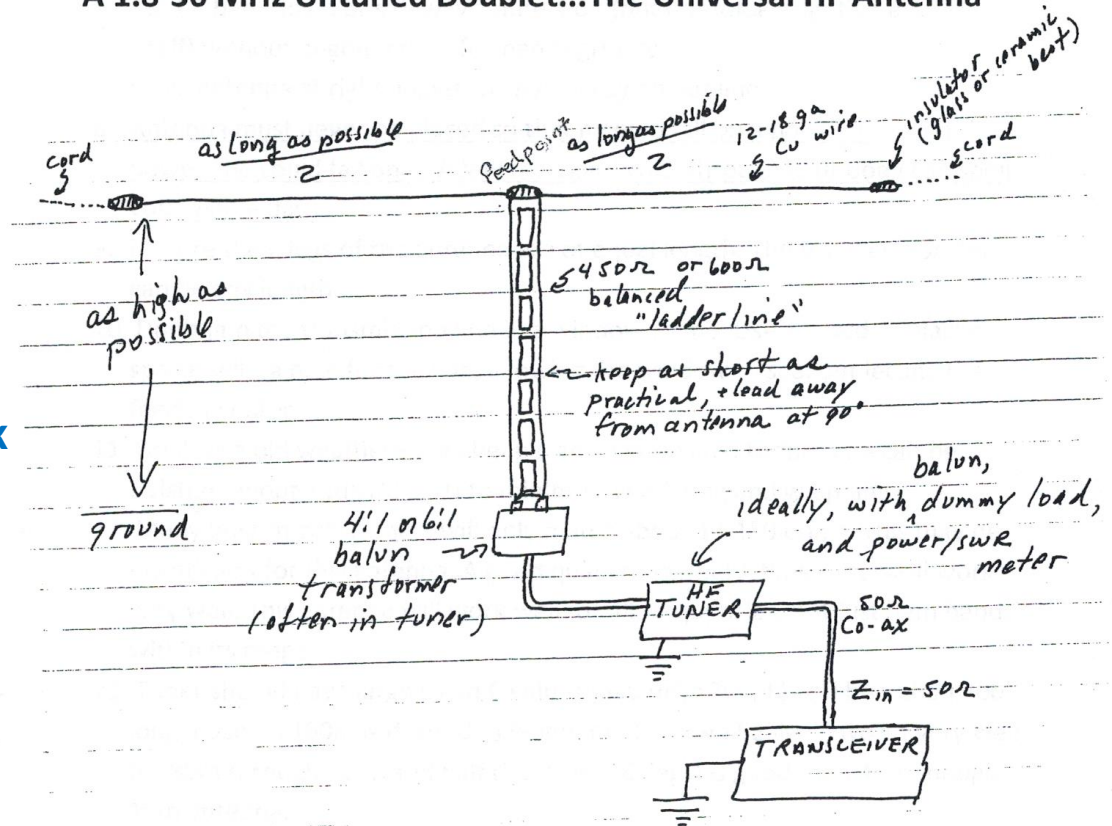 A 1.8-30 MHz Untuned Doublet...The Universal HF Antenna
cord
as long as possible
2
feedpoint
as long as possible
2
12-18 ga
Cu wire
insulator
(glass or ceramic
best)
cord
as high as
possible
ground
450Ω or 600Ω
balanced
"ladder line"
keep as short as
practical, + lead away
from antenna at 90°
4:1 or 6:1
balun
transformer
(often in tuner)
balun,
ideally, with ^ dummy load,
and power/SWR
meter
HF
TUNER
50Ω
Co-ax
Zin = 50Ω
TRANSCEIVER